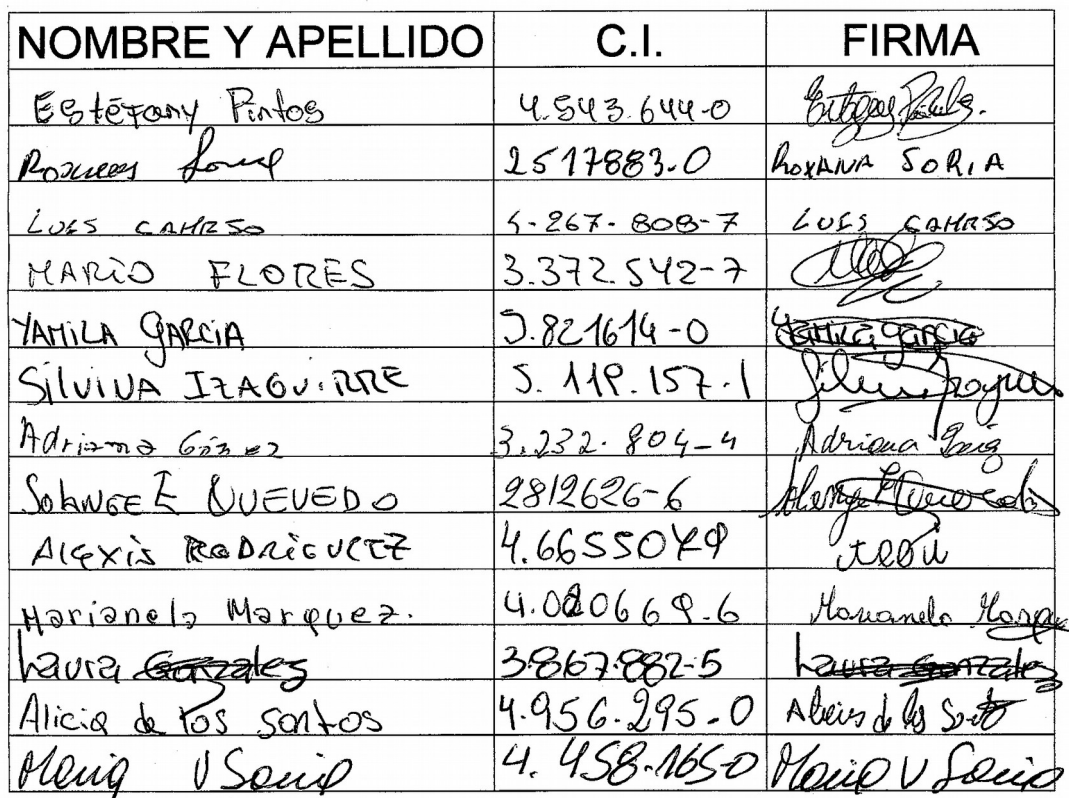 NOMBRE Y APELLIDO C.I. FIRMA
Estéfany Pintos 4.543.644-0
Soria 2517883-0 ROXANA SORIA
LUIS CAHRSO 4-267-808-7 LUIS CAHRSO
MARIO FLORES 3.372.542-7
YAMILA GARCIA 5.821614-0 Yamila garcia
SILVINA IZAGUIRRE 5.119.157.1
Adriana Gómez 3.232.804-4 Adriana
SOLANGE E QUEVEDO 2812626-6
ALEXIS RODRÍGUEZ 4.6655079
Marianela Marquez. 4.020669.6 Marianela Marque
Laura Gonzalez 3867.882-5 Laura Gonzalez
Alicia de los santos 4.956.295-0 Alicia de los Santos
Maria V Soria 4.458.165-0 Maria V Soria